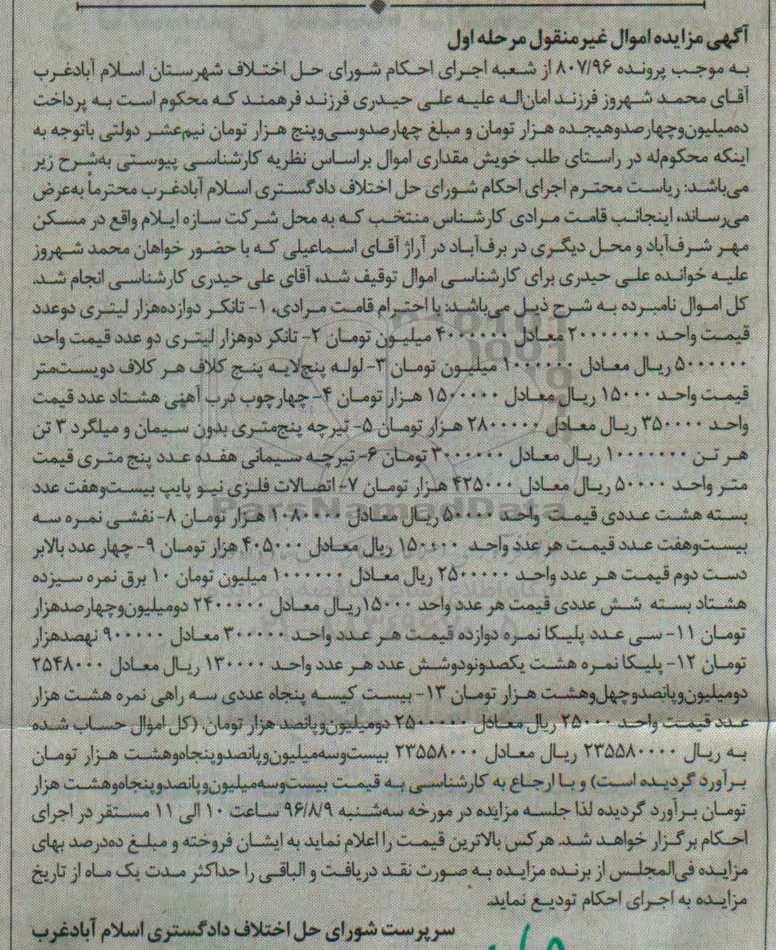 آگهی مزایده اموال غیرمنقول مرحله اول
به موجب پرونده ۸۰۷/۹۶ از شعبه اجرای احکام شورای حل اختلاف شهرستان اسلام آبادغرب
آقای محمد شهروز فرزند امان‌اله علیه علی حیدری فرزند فرهمند که محکوم است به پرداخت
ده‌میلیون‌وچهارصدوهیجده هزار تومان و مبلغ چهارصدوسی‌وپنج هزار تومان نیم‌عشر دولتی باتوجه به
اینکه محکوم‌له در راستای طلب خویش مقداری اموال براساس نظریه کارشناسی پیوستی به‌شرح زیر
می‌باشد: ریاست محترم اجرای احکام شورای حل اختلاف دادگستری اسلام آبادغرب محترماً به‌عرض
می‌رساند، اینجانب قامت مرادی کارشناس منتخب که به محل شرکت سازه ایلام واقع در مسکن
مهر شرف‌آباد و محل دیگری در برف‌آباد در آراژ آقای اسماعیلی که با حضور خواهان محمد شهروز
علیه خوانده علی حیدری برای کارشناسی اموال توقیف شد، آقای علی حیدری کارشناسی انجام شد.
کل اموال نامبرده به شرح ذیل می‌باشد: با احترام قامت مرادی، ۱- تانکر دوازده‌هزار لیتری دوعدد
قیمت واحد ۲۰۰۰۰۰۰۰ معادل ۴۰۰۰۰۰۰ میلیون تومان ۲- تانکر دوهزار لیتری دو عدد قیمت واحد
۵۰۰۰۰۰۰ ریال معادل ۱۰۰۰۰۰۰ میلیون تومان ۳- لوله پنج‌لایه پنج کلاف هر کلاف دویست‌متر
قیمت واحد ۱۵۰۰۰ ریال معادل ۱۵۰۰۰۰۰ هزار تومان ۴- چهارچوب درب آهنی هشتاد عدد قیمت
واحد ۳۵۰۰۰۰ ریال معادل ۲۸۰۰۰۰۰ هزار تومان ۵- تیرچه پنج‌متری بدون سیمان و میلگرد ۳ تن
هر تن ۱۰۰۰۰۰۰۰ ریال معادل ۳۰۰۰۰۰۰ تومان ۶- تیرچه سیمانی هفده عدد پنج متری قیمت
متر واحد ۵۰۰۰۰ ریال معادل ۴۲۵۰۰۰ هزار تومان ۷- اتصالات فلزی نیو پایپ بیست‌وهفت عدد
بسته هشت عددی قیمت واحد ۵۰۰۰۰ ریال معادل ۱۰۸۰۰۰۰ هزار تومان ۸- نفشی نمره سه
بیست‌وهفت عدد قیمت هر عدد واحد ۱۵۰۰۰۰ ریال معادل ۴۰۵۰۰۰ هزار تومان ۹- چهار عدد بالابر
دست دوم قیمت هر عدد واحد ۲۵۰۰۰۰۰ ریال معادل ۱۰۰۰۰۰۰ میلیون تومان ۱۰ برق نمره سیزده
هشتاد بسته شش عددی قیمت هر عدد واحد ۱۵۰۰۰ریال معادل ۲۴۰۰۰۰۰ دومیلیون‌وچهارصدهزار
تومان ۱۱- سی عدد پلیکا نمره دوازده قیمت هر عدد واحد ۳۰۰۰۰۰ معادل ۹۰۰۰۰۰ نهصدهزار
تومان ۱۲- پلیکا نمره هشت یکصدونودوشش عدد هر عدد واحد ۱۳۰۰۰۰ ریال معادل ۲۵۴۸۰۰۰
دومیلیون‌وپانصدوچهل‌وهشت هزار تومان ۱۳- بیست کیسه پنجاه عددی سه راهی نمره هشت هزار
عدد قیمت واحد ۲۵۰۰۰ ریال معادل ۲۵۰۰۰۰۰ دومیلیون‌وپانصد هزار تومان. (کل اموال حساب شده
به ریال ۲۳۵۵۸۰۰۰۰ ریال معادل ۲۳۵۵۸۰۰۰ بیست‌وسه‌میلیون‌وپانصدوپنجاه‌وهشت هزار تومان
برآورد گردیده است) و با ارجاع به کارشناسی به قیمت بیست‌وسه‌میلیون‌وپانصدوپنجاه‌وهشت هزار
تومان برآورد گردیده لذا جلسه مزایده در مورخه سه‌شنبه ۹۶/۸/۹ ساعت ۱۰ الی ۱۱ مستقر در اجرای
احکام برگزار خواهد شد. هرکس بالاترین قیمت را اعلام نماید به ایشان فروخته و مبلغ ده‌درصد بهای
مزایده فی‌المجلس از برنده مزایده به صورت نقد دریافت و الباقی را حداکثر مدت یک ماه از تاریخ
مزایده به اجرای احکام تودیع نماید.
سرپرست شورای حل اختلاف دادگستری اسلام آبادغرب
ParsNamadData